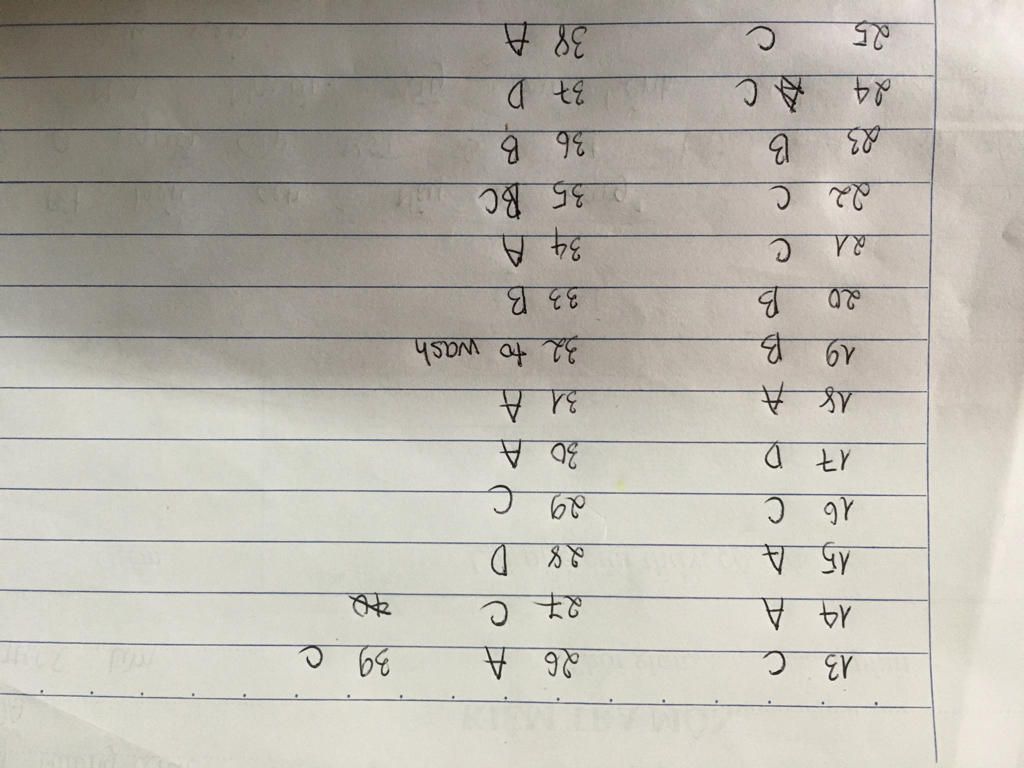 13 C 26 A 39 C
14 A 27 C
15 A 28 D
16 C 29 C
17 D 30 A
18 A 31 A
19 B 32 to wash
20 B 33 B
21 C 34 A
22 C 35 C
23 B 36 B
24 C 37 D
25 C 38 A
KIỂM TRA MÔN